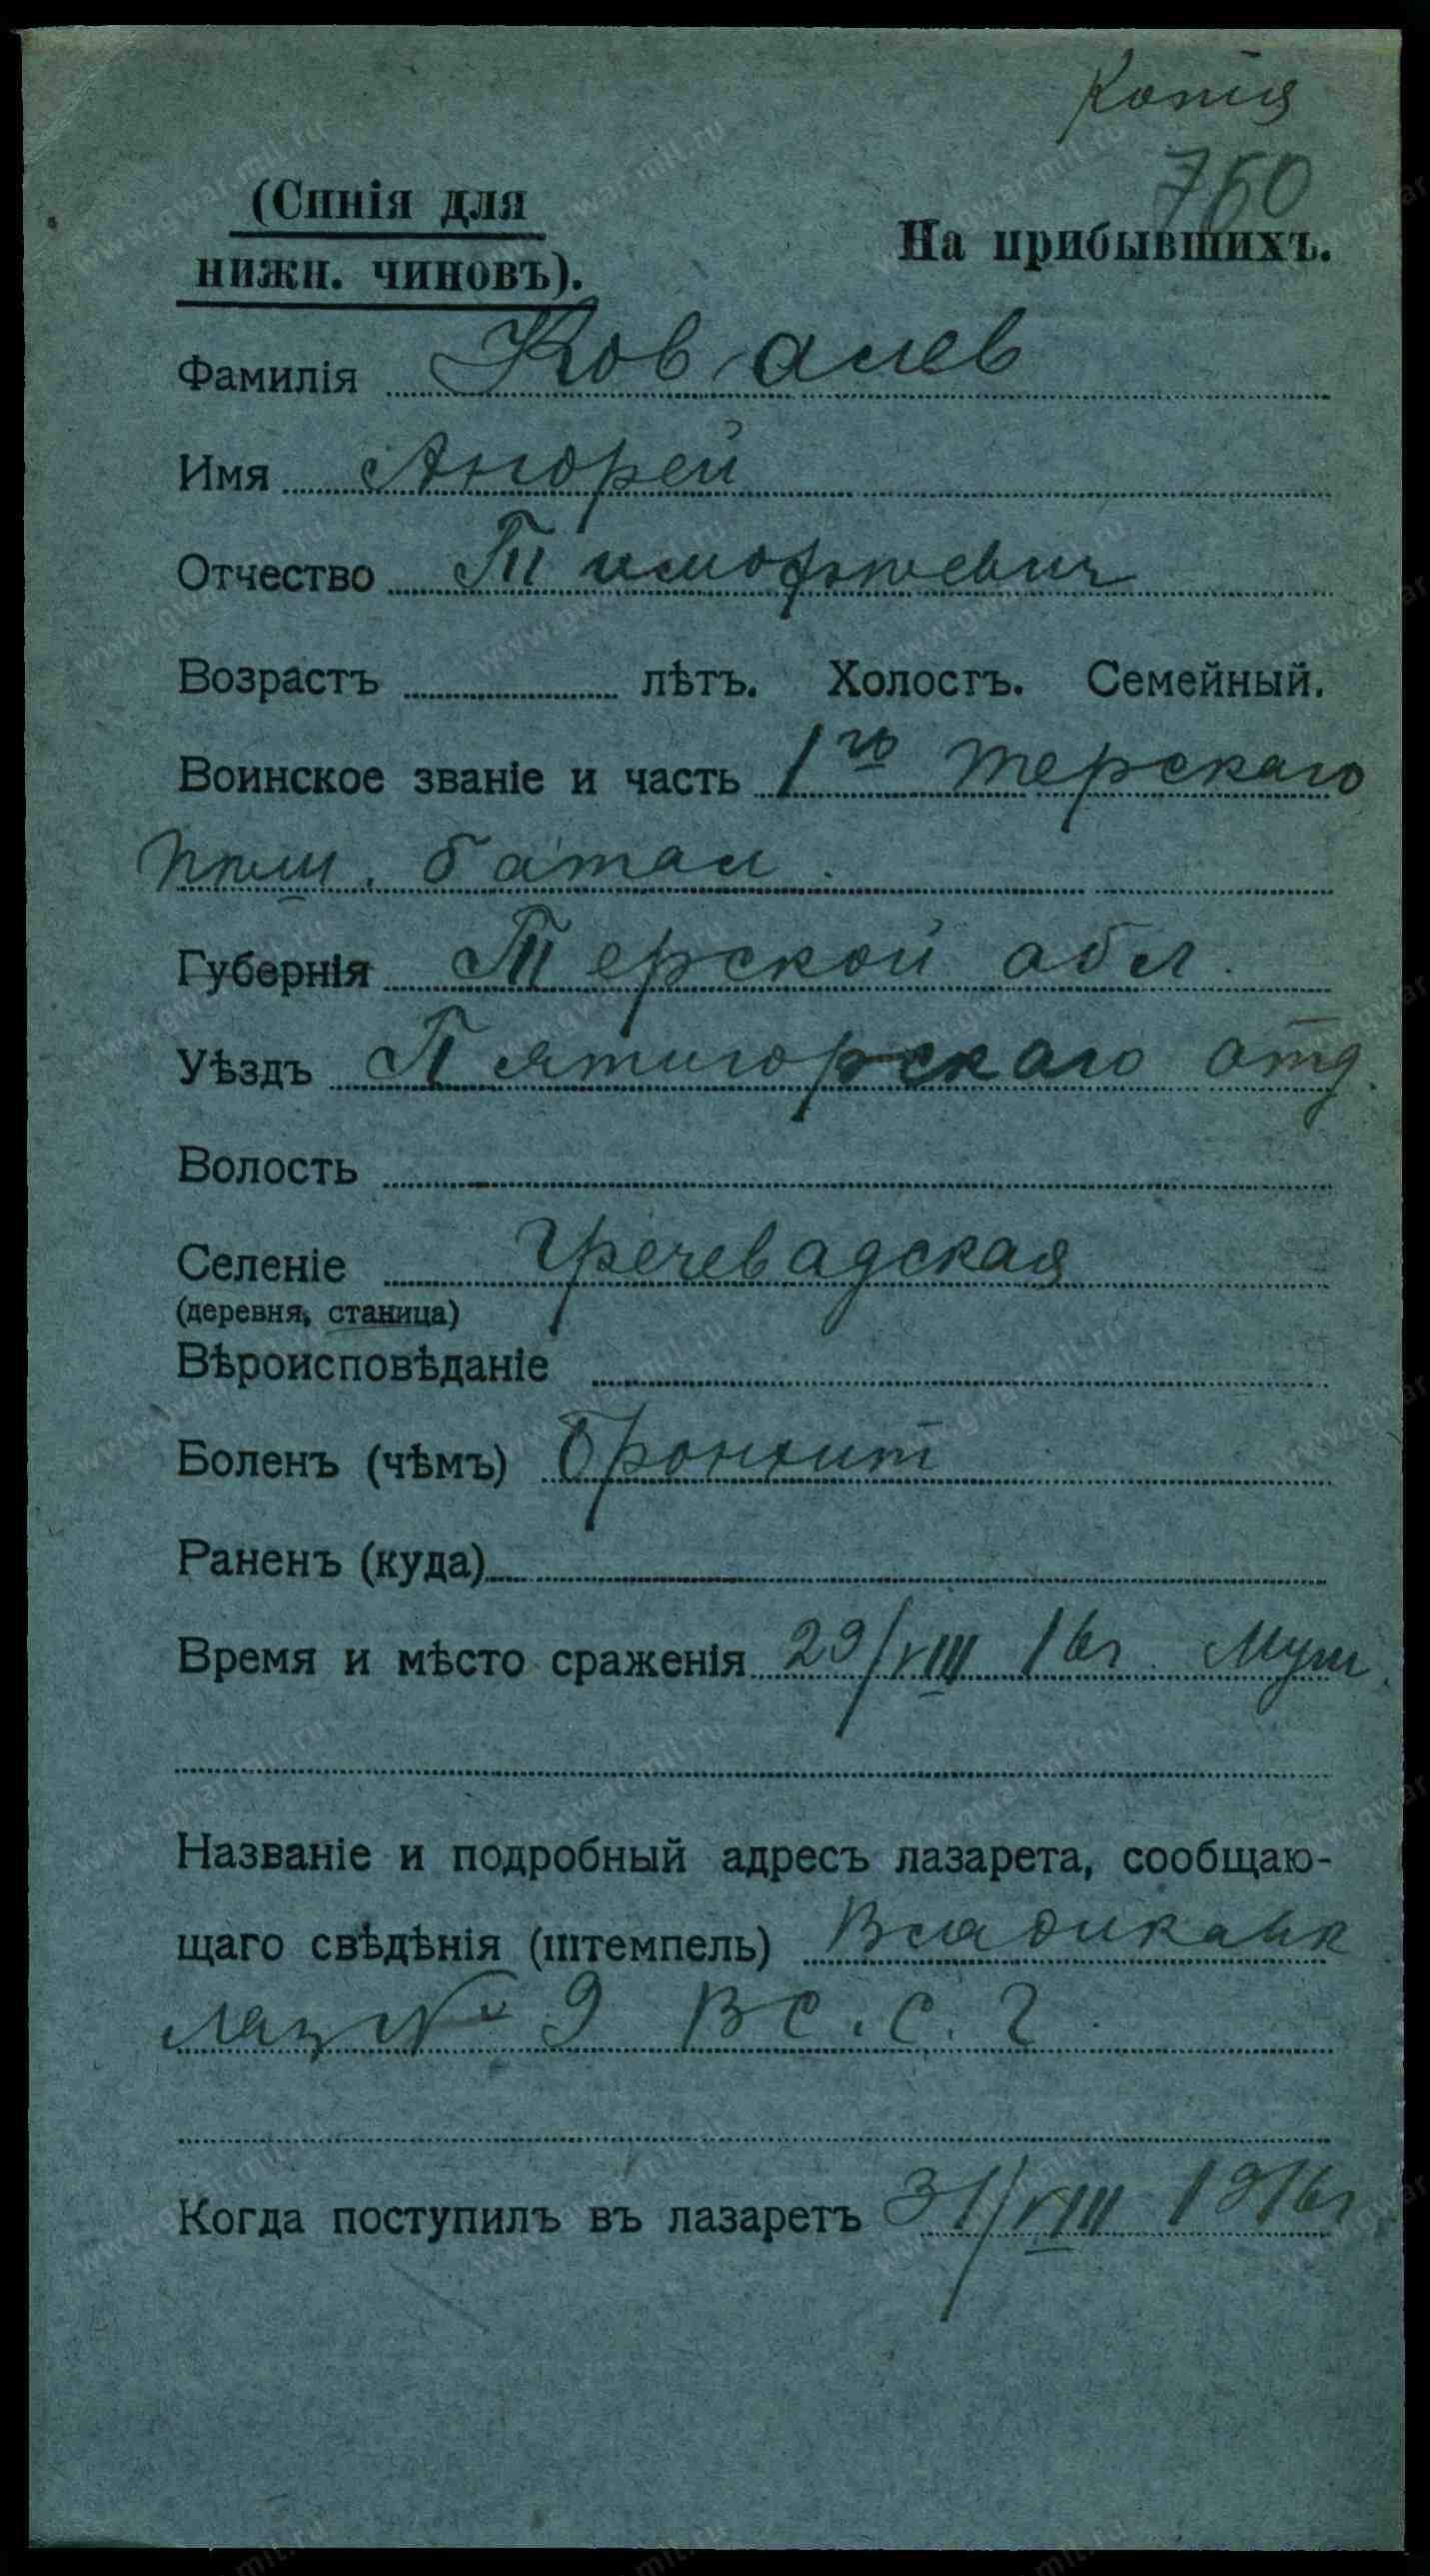 Копия
760
(Синія для
нижн. чиновъ).
На прибывшихъ.
Фамилія Ковалев
Имя Андрей
Отчество Тимофеевич
Возрастъ лѣтъ. Холостъ. Семейный.
Воинское званіе и часть 1го Терскаго
батал.
Губернія Терской обл.
Уѣздъ Пятигорскаго отд.
Волость
Селеніе Гречевадская
(деревня, станица)
Вѣроисповѣданіе
Боленъ (чѣмъ) Бронхит
Раненъ (куда)
Время и мѣсто сраженія 29/VIII 16г. Муш
Названіе и подробный адресъ лазарета, сообщаю-
щаго свѣдѣнія (штемпель) Владикавк
Лаз № 9 В С. С. Г.
Когда поступилъ въ лазаретъ 31/VIII 1916г.